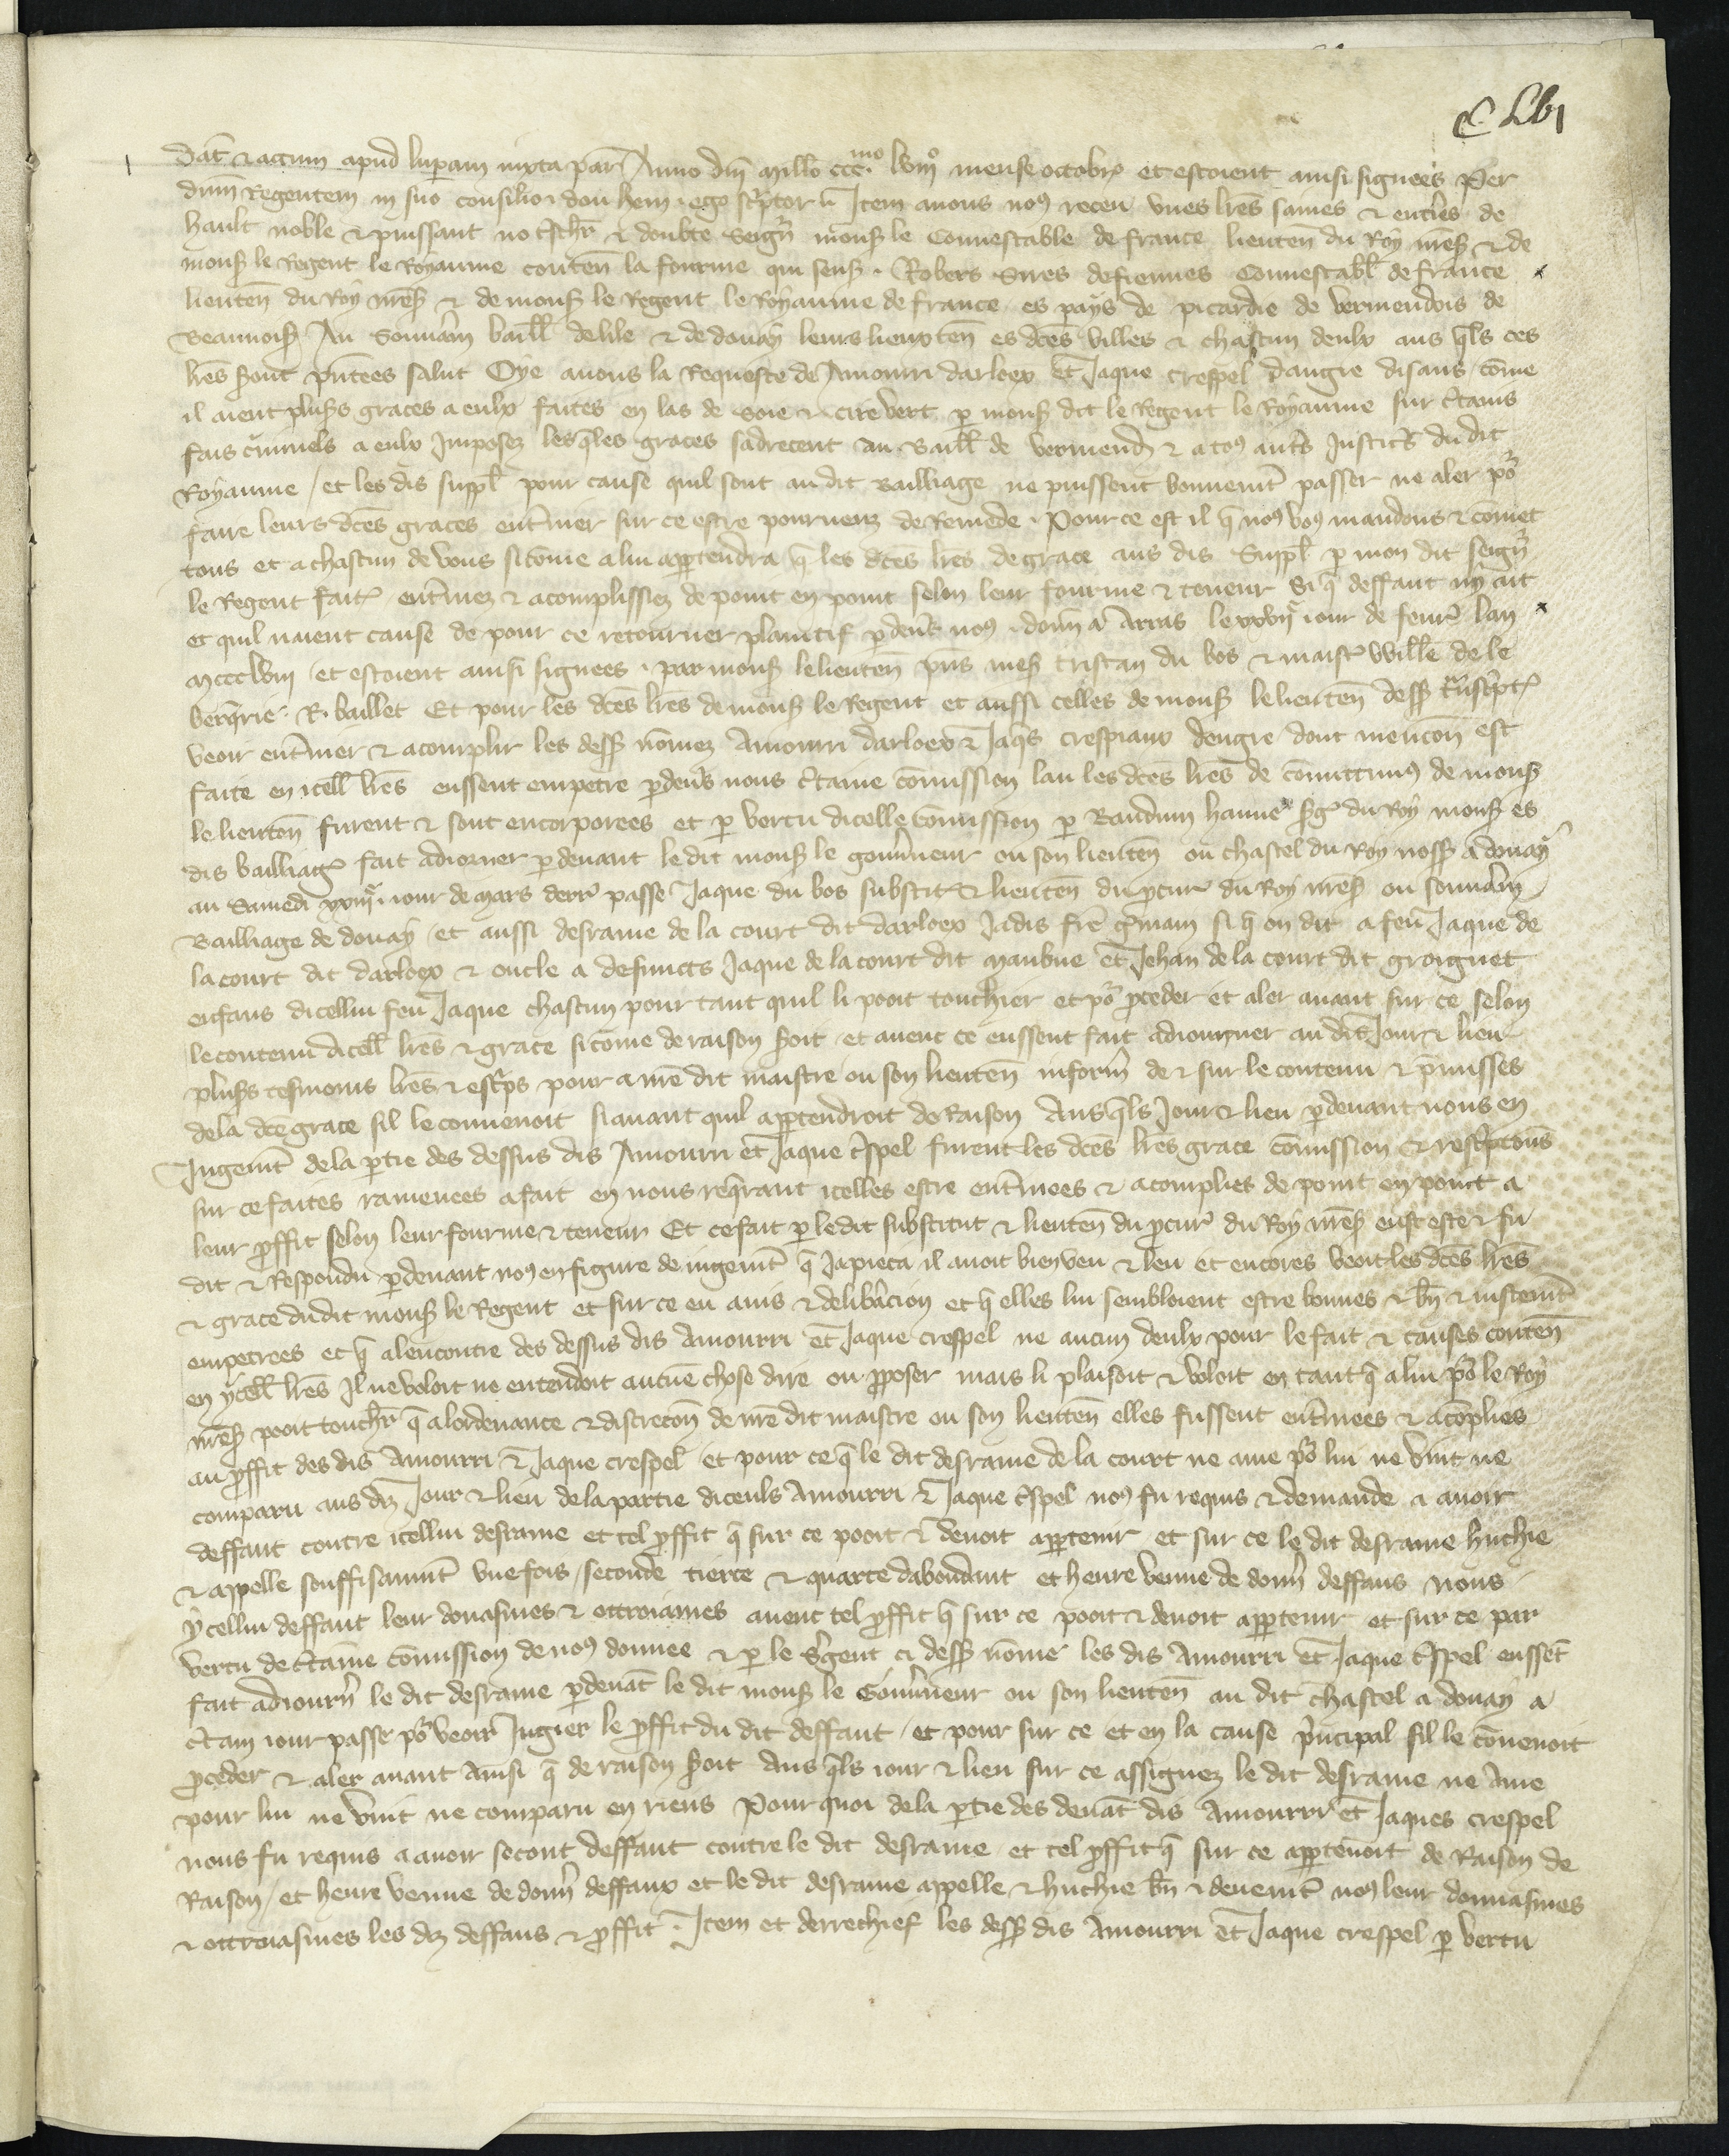 C Lvi
Dat̄ & actum apud luparam iuxta par̄ Anno dm̄ mill̄o ccc.mo lviijo mense octobr̄ et estoient ainsi signees Per
dnm̄ Regentem in suo consilio. dou hem. ego scp̄tor u Item auons nos receu vnes lr̄es saines & entīeres de
hault noble & puissant no tschr̄ & doubte Seign̄ mons le Connestable de france lieuten̄ du Roy nr̄es & de
mons le Regent le Royaume conten̄ la fourme qui sens. Robers Sires defiennes Connestabl̄ de france
lieuten̄ du Roy nr̄es & de mons le Regent le Royaume de france es pays de picardie de vermendois de
Beauuoisis Au Souuān baill̄ delile & de douay leurs lieux ten̄ es dc̄es villes & chascun deulx aus q̄ls ces
lr̄es seront pn̄tees salut Oye auons la Requeste de Amourri darloex Et Jaque crespel dangre disans cōme
il aient plusrs graces a eulx faites en las de soie & cire vert p mons dit le Regent le Royaume sur c̄tains
fais c̄iminels a eulx Imposez lesq̄les graces sadrecent au Baill̄ de vermend̄ & a tos aut̄s Justic̄s du dit
Royaume / et les dis suppl̄ pour cause quil sont au dit Bailliage ne puissent bonnemt̄ passer ne aler po
faire leurs dc̄es graces ent̄iner sur ce estre pourueuz de Remede. Pour ce est il q̄ nos vos mandons & cōmet
tons et a chascun de vous si cōme a lui aptendra q̄ les dc̄es lr̄es de grace aus dis Suppl̄ p mon dit seign̄
le Regent fait̄ ent̄inez & acomplissiez de point en point selon leur fourme & teneur Si q̄ deffaut ny ait
et quil naient cause de pour ce retourner plaintif pdeūs nos. donn̄ a Arras le xxvije iour de feur̄ lan
mccclviij et estoient ainsi signees. par mons lelieuten̄ pn̄s mes tristan du bos & maist̄ Will̄e de le
berq̄rie. R. baillet Et pour les dc̄es lr̄es de mons le Regent et aussi celles de mons lelieuten̄ dess tn̄scpt̄
veoir ent̄iner & acomplir les dess nōmez Amourri darloex & Jaq̄s crespiaux dengre dont mencon̄ est
faite en icell̄ lr̄es eussent empetre pdeūs nous c̄taine cōmission lau les dc̄es lr̄es de cōmittimus de mons
lelieuten̄ furent & sont encorporees et p vertu dicelle cōmission p Bauduin hanne sḡ du Roy mons es
dis bailliaḡ fait adiorner pdeuant ledit mons le gouūneur ou son lieuten̄ ou chastel du Roy noss a douay
au Samedi xxiije iour de Mars derr̄ passe Jaque du bos substit̄ & lieuten̄ du pcur̄ du Roy nr̄es ou souuān
Bailliage de douay / et aussi desrame de la court dit darloex Jadis frē ḡmain si q̄ on dit a feu Jaque de
la court dit darloex & oncle a defuncts Jaque de la court dit Maubue Et Jehan de la court dit groignet
enfans dicellui feu Jaque chascun pour tant quil li pooit touchier et po pceder et aler auant sur ce selon
le contenu dicell̄ lr̄es & grace si cōme de raison seroit et auent ce eussent fait adiourner au dit Jour & lieu
plusrs tesmoins lr̄es & escp̄s pour a mē dit maistre ou son lieuten̄ inform̄ de & sur le contenu & pmisses
dela dc̄e grace sil le conuenoit si auant quil aptendroit de Raison Ausq̄ls Jour & lieu pdeuant nous en
Jugemt̄ dela ptie des dessus dis Amourri et Jaque c̄spel furent les dc̄es lr̄es grace cōmission & rescpcions
sur ce faites ramenees a fait en nous req̄rant icelles estre ent̄inees & acomplies de point en point a
leur pffit selon leur fourme & teneur Et ce fait p ledit substitut & lieuten̄ du pcur̄ du Roy nr̄es eust este & fu
dit & Respondu pdeuant nos en figure de iugemt̄ q̄ Japieca il auoit bien veu & leu et encores veoit les dc̄es lr̄es
& grace dudit mons le Regent et sur ce eu auis & delibacion et q̄ elles lui sembloient estre bonnes & bn̄ & iustemt̄
empetrees et q̄ alencontre des dessus dis Amourri et Jaque crespel ne aucun deulx pour le fait & causes conten̄
en ycell̄ lr̄es Il ne voloit ne entendoit aucūe chose dire ou pposer mais li plaisoit & voloit en tant q̄ a lui po le Roy
nr̄es pooit touchr̄ q̄ a lordenance & discrecon̄ de mē dit maistre ou son lieuten̄ elles fussent ent̄inees & acōplies
au pffit des dis Amourri & Jaque crespel et pour ce q̄ le dit desrame de la court ne autre po lui ne vint ne
comparu aus diz Jour & lieu dela partie diceuls Amourri & Jaque c̄spel nos fu requis & demande a auoir
deffaut contre icellui desrame et tel pffit q̄ sur ce pooit & deuoit aptenir et sur ce le dit desrame huchie
& appelle souffisanmt̄ vne fois / seconde tierce & quarte dabondant et heure venue de donn̄ deffaus nous
ycellui deffaut leur donasmes & ottroiames auent tel pffit q̄ sur ce pooit & deuoit aptenir et sur ce par
vertu de c̄taine cōmission de nos donnee & p le sgent ci dess nōme les dis Amourri et Jaque c̄spel eussēt
fait adiourn̄ le dit desrame pdeuāt le dit mons le Gouūneur ou son lieuten̄ au dit chastel a douay a
c̄tain iour passe po veoir Jugier le pffit du dit deffaut / et pour sur ce et en la cause pncipal sil le cōuenoit
pceder & aler auant Ainsi q̄ de raison seroit Aus q̄ls iour & lieu sur ce assignez le dit desrame ne autre
pour lui ne vint ne comparu en riens Pour quoi dela ptie des deuāt dis Amourri et Jaques crespel
nous fu requis a auoir secont deffaut contre le dit desrame et tel pffit q̄ sur ce aptenoit de Raison de
Raison / et heure venue de donn̄ deffaux et le dit desrame appelle & huchie bn̄ & deuemt̄ nos leur donnasmes
& ottroiasmes les diz deffaus & pffit. Item et derrechief les dess dis Amourri et Jaque crespel p vertu